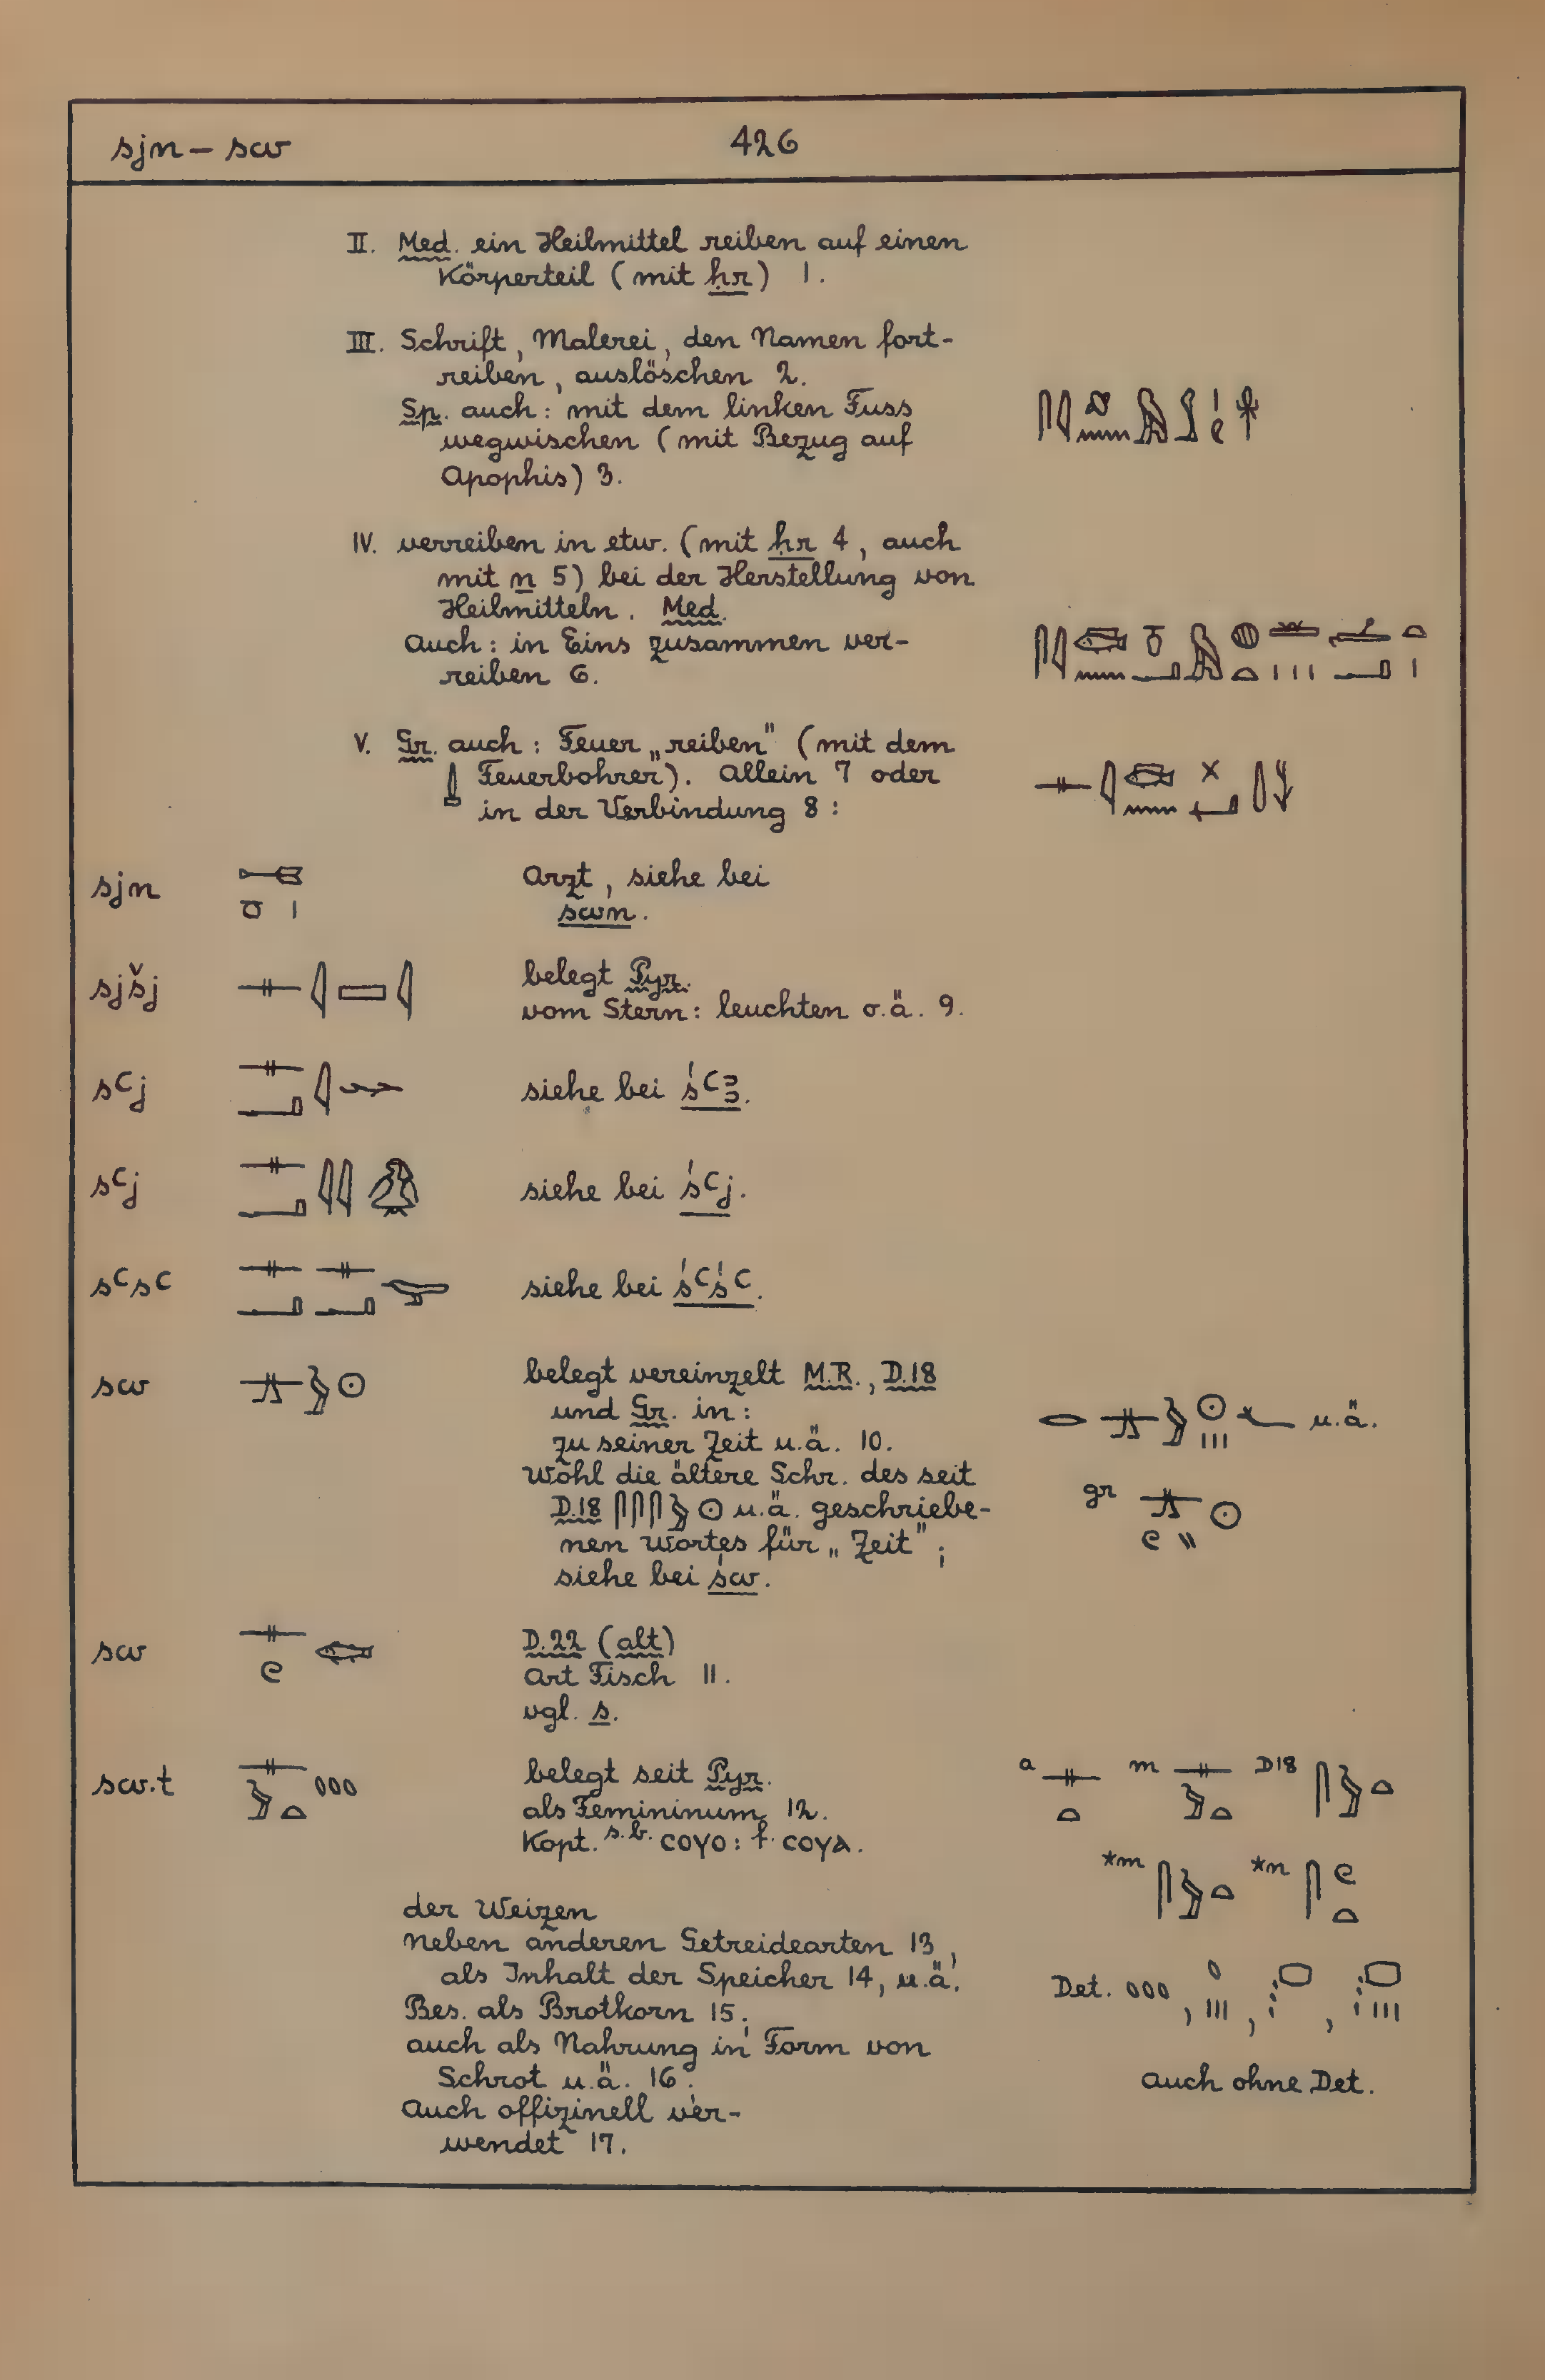 sjn – sw 426
II. Med. ein Heilmittel reiben auf einen
Körperteil (mit ḥr) 1.
III. Schrift, Malerei, den Namen fort-
reiben, auslöschen 2.
Sp. auch: mit dem linken Fuss
wegwischen (mit Bezug auf
Apophis) 3.
IV. verreiben in etw. (mit ḥr 4, auch
mit n 5) bei der Herstellung von
Heilmitteln. Med.
Auch: in Eins zusammen ver-
reiben 6.
V. Gr. auch: Feuer „reiben" (mit dem
Feuerbohrer). Allein 7 oder
in der Verbindung 8:
sjn Arzt, siehe bei
swn.
sjšj belegt Pyr.
vom Stern: leuchten o.ä. 9.
sꜥj siehe bei śꜥꜣ.
sꜥj siehe bei śꜥj.
sꜥsꜥ siehe bei śꜥśꜥ.
sw belegt vereinzelt M.R., D.18
und Gr. in:
zu seiner Zeit u.ä. 10.
u.ä.
Wohl die ältere Schr. des seit
D.18 u.ä. geschriebe-
nen Wortes für „Zeit";
siehe bei św.
gr
sw D.22 (alt)
Art Fisch 11.
vgl. s.
sw.t belegt seit Pyr.
als Femininum 12.
Kopt. s.b. ⲥⲟⲩⲟ: f. ⲥⲟⲩⲁ.
a m D18
*m *n
der Weizen
neben anderen Getreidearten 13,
als Inhalt der Speicher 14, u.ä.
Bes. als Brotkorn 15;
auch als Nahrung in Form von
Schrot u.ä. 16;
Auch offizinell ver-
wendet 17.
Det. , , ,
auch ohne Det.